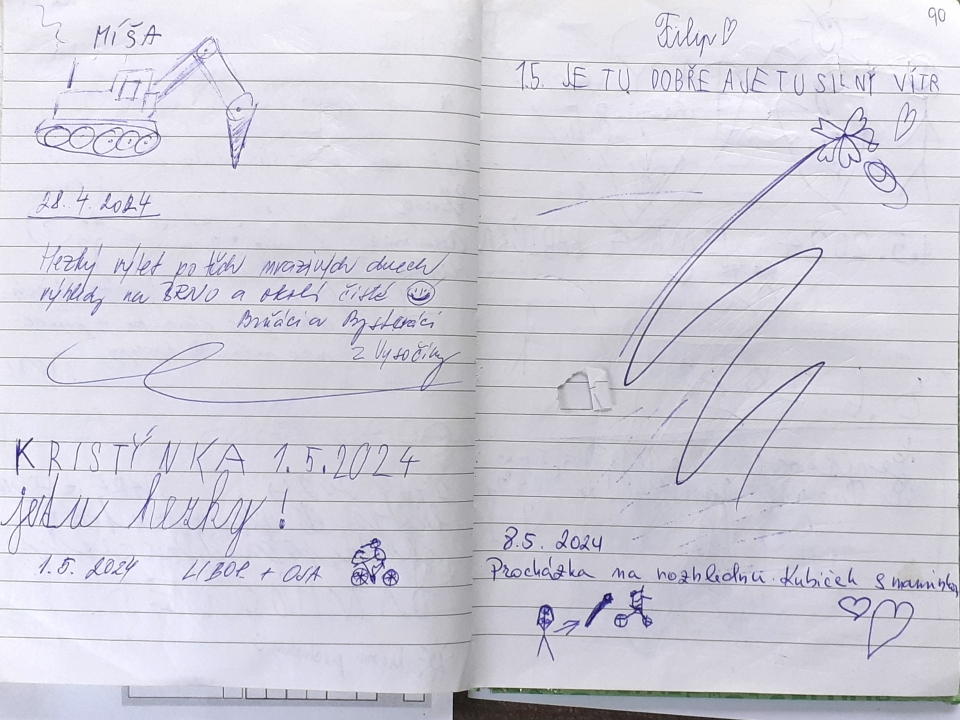 MÍŠA
28.4.2024
Hezký výlet po těch mrazivých dnech
výhledy na BRNO a okolí čisté
Brňáci a Bysteráci
z Vysočiny
KRISTÝNKA 1.5.2024
je tu hezky!
1.5. 2024 LIBOR + OJA
90
Filip
1.5. JE TU DOBŘE A JE TU SILNÝ VÍTR
8.5. 2024
Procházka na rozhlednu. Kubíček s maminkou